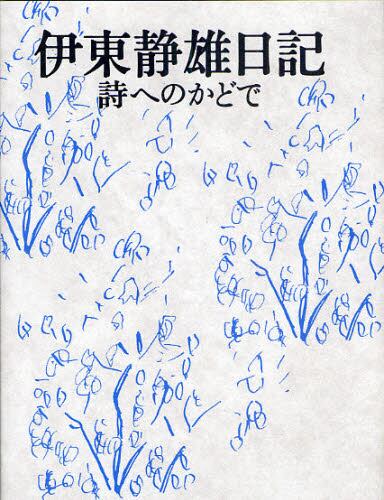 伊東静雄日記
詩へのかどで